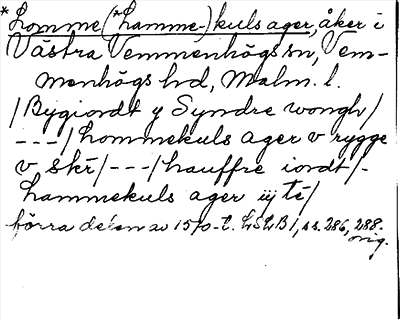 *Homme(*hamme-)kuls ager, åker i
Västra Vemmenhögs sn, Vem-
menhögs hd, Malm. l.
/Bygiordt y Syndre wongh/
---/hommekuls ager v rygge
v skr/---/hauffre iordt/-
hammekuls ager iij te/
förra delen av 1570-t. LSLB1, ss. 286, 288.
orig.